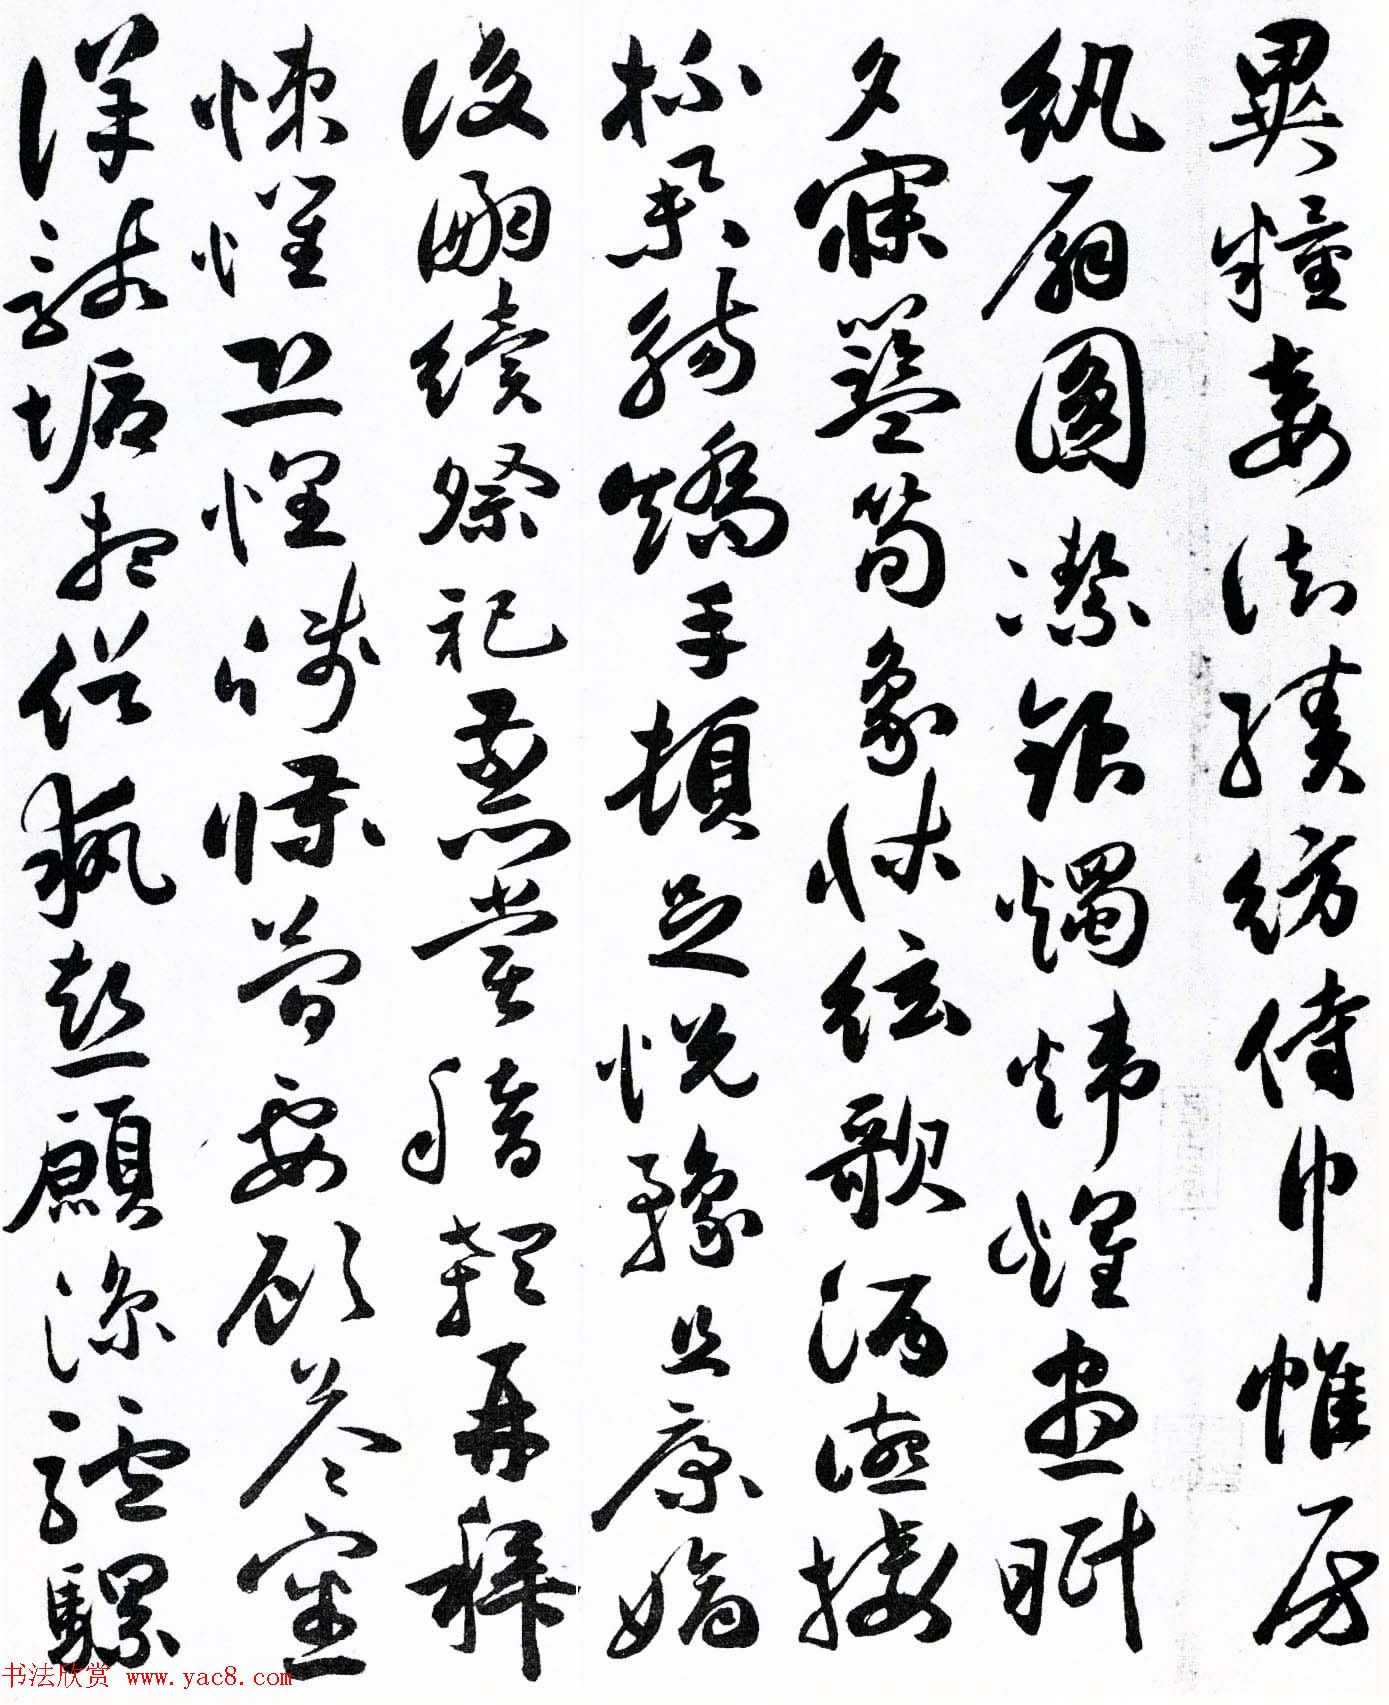 異糧妾御績紡侍巾帷房
紈扇圓潔銀燭煒煌晝眠
夕寐籃筍象牀絃歌酒讌接
杯舉觴矯手頓足悅豫且康嫡
後嗣續祭祀蒸嘗稽顙再拜
悚懼恐惶牋牒簡要顧答審
詳骸垢想浴執熱願涼驢騾
书法欣赏 www.yac8.com